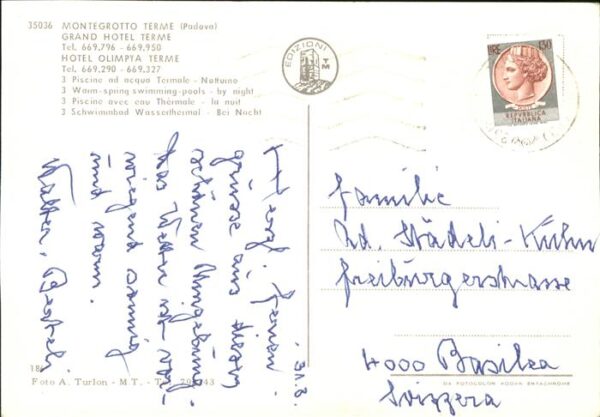 35036 MONTEGROTTO TERME (Padova)
GRAND HOTEL TERME
Tel. 669.796 - 669.950
HOTEL OLIMPIA TERME
Tel. 669.290 - 669.327
3 Piscine ad acqua Termale - Notturno
3 Warm-spring swimming-pools - by night
3 Piscines avec eau Thérmale - la nuit
3 Schwimmbad Wasserthermal - Bei Nacht
EDIZIONI
TM
LIRE 130
REPVBBLICA
ITALIANA
31.8.
Herzl. Ferien-
grüsse aus dieser
schönen Umgebung.
Das Wetter ist vor-
wiegend sonnig
und warm.
Walter,
Familie
Ad. Städeli-Kuhn
Freiburgerstrasse
4000 Basilea
Svizzera
18
Foto A. Turlon - M T. -
DA FOTOCOLOR KODAK EKTACHROME